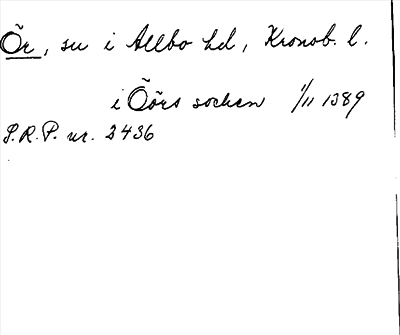 Ör, sn i Allbo hd, Kronob. l.
i Öörs sochen 1/11 1389
S.R.P. nr. 2436